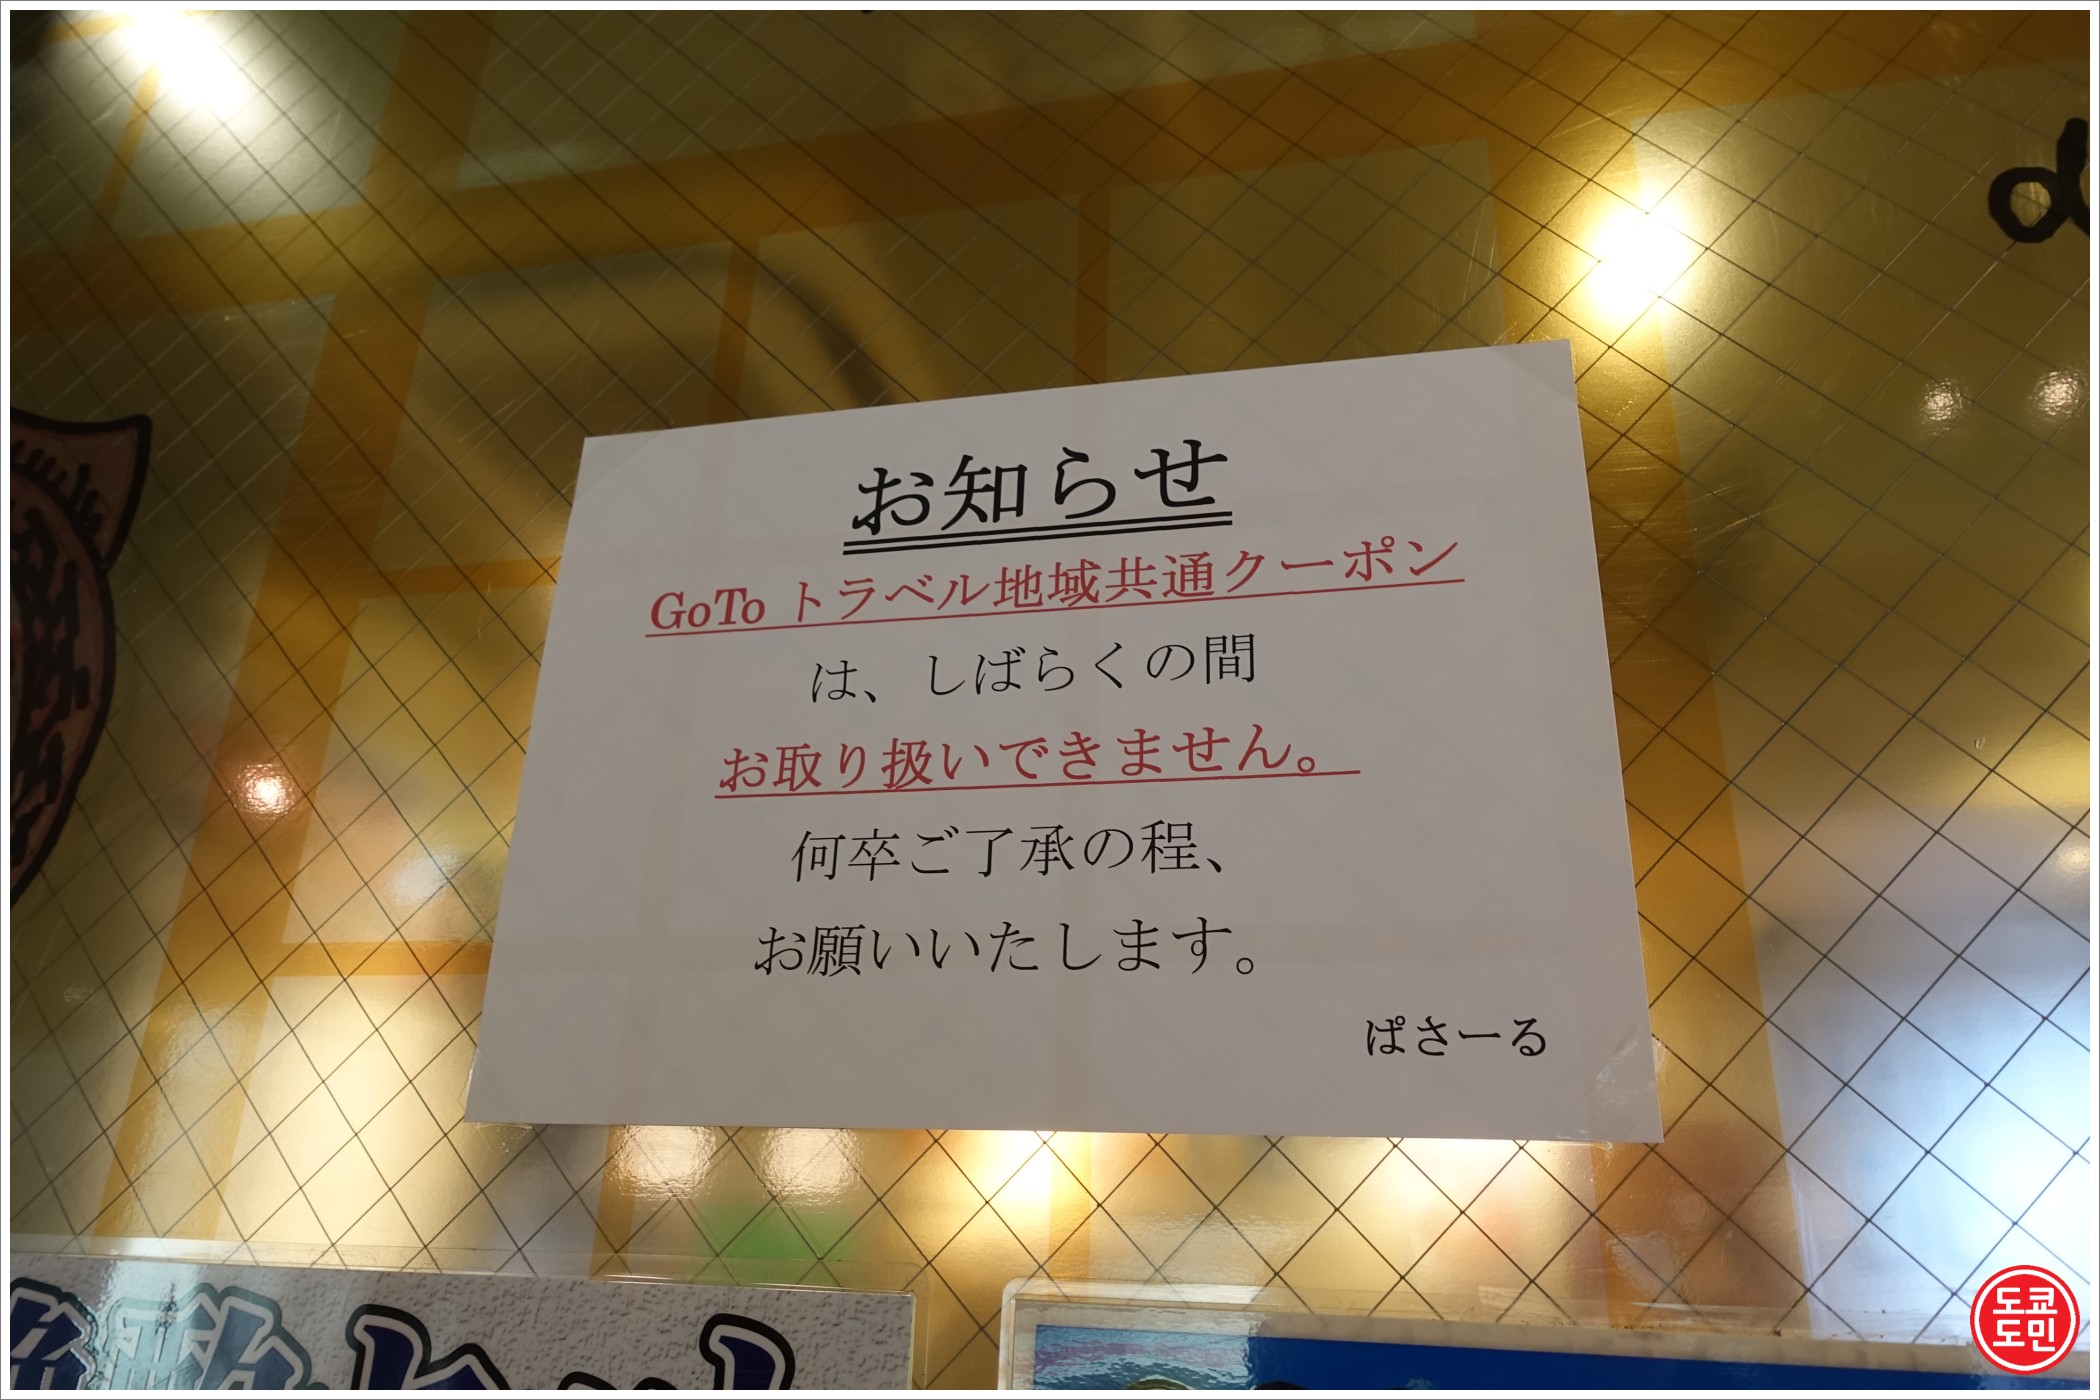 お知らせ
GoTo トラベル地域共通クーポン
は、しばらくの間
お取り扱いできません。
何卒ご了承の程、
お願いいたします。
ぱさーる
도쿄
도민